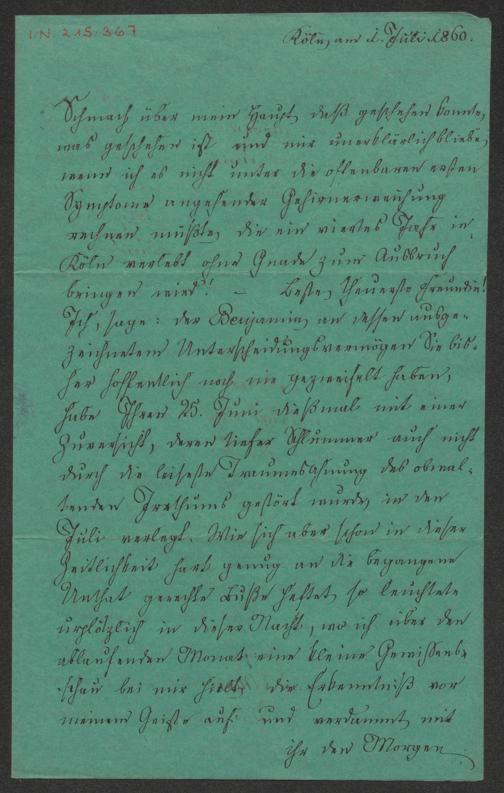 I.N. 215.367
Köln, am 1. Juli 1860.
Schmach über mein Haupt, daß geschehen konnte,
was geschehen ist und mir unerklärlich bliebe,
wenn ich es nicht unter die offenbaren ersten
Symptome angehender Gehirnerweichung
rechnen müßte, die ein viertes Jahr in
Köln verlebt ohne Gnade zum Ausbruch
bringen wird! – Beste, theuerste Freundin!
Ich, sage: der Benjamin, an dessen ausge-
zeichnetem Unterscheidungsvermögen Sie bis-
her hoffentlich noch nie gezweifelt haben,
habe Ihren 25. Juni dießmal mit einer
Zuversicht, deren tiefer Schlummer auch nicht
durch die leiseste Traumesahnung des obwal-
tenden Irrthums gestört wurde, in den
Juli verlegt. Wie sich aber schon in dieser
Zeitlichkeit hart genug an die begangene
Unthat gerechte Buße heftet, so leuchtete
urplötzlich in dieser Nacht, wo ich über den
ablaufenden Monat eine kleine Gewissens-
schau bei mir hielt, die Erkenntniß vor
meinem Geiste auf und verdammt mit
ihr den Morgen